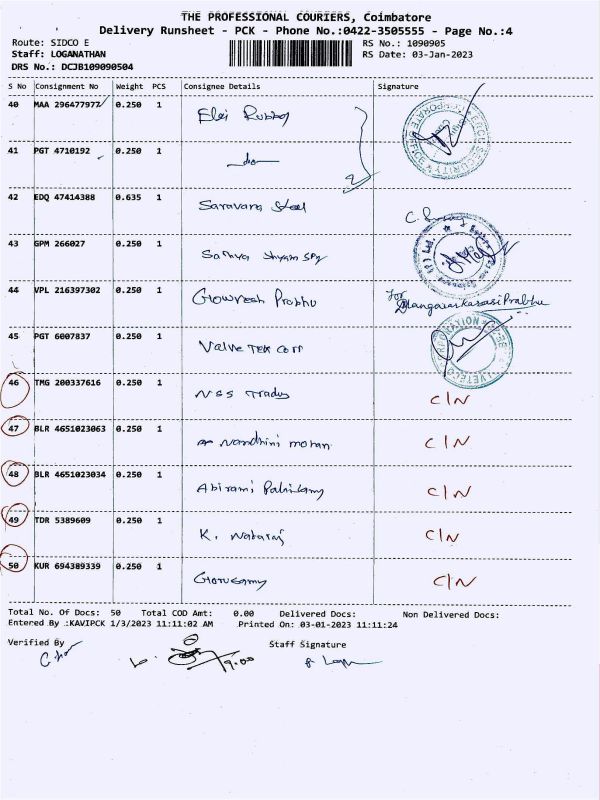 THE PROFESSIONAL COURIERS, Coimbatore
Delivery Runsheet - PCK - Phone No.:0422-3505555 - Page No.:4
Route: SIDCO E RS No.: 1090905
Staff: LOGANATHAN RS Date: 03-Jan-2023
DRS No.: DCJB109090504
S No Consignment No Weight PCS Consignee Details Signature
40 MAA 296477977 0.250 1 Elei Rubber
41 PGT 4710192 0.250 1
42 EDQ 47414388 0.635 1 Saravana Steel
43 GPM 266027 0.250 1 Sathya Shyam Spg
44 VPL 216397302 0.250 1 Gowreesh Prabhu for Mangaiarkarasi Prabhu
45 PGT 6007837 0.250 1 Valve Tek Corp
46 TMG 200337616 0.250 1 NSS Trades C/N
47 BLR 4651023063 0.250 1 Nandhini mohan C/N
48 BLR 4651023034 0.250 1 Abirami Palnisamy C/N
49 TDR 5389609 0.250 1 K. Nataraj C/N
50 KUR 694389339 0.250 1 Goruswamy C/N
Total No. Of Docs: 50 Total COD Amt: 0.00 Delivered Docs: Non Delivered Docs:
Entered By :KAVIPCK 1/3/2023 11:11:02 AM Printed On: 03-01-2023 11:11:24
Verified By Staff Signature
9.00